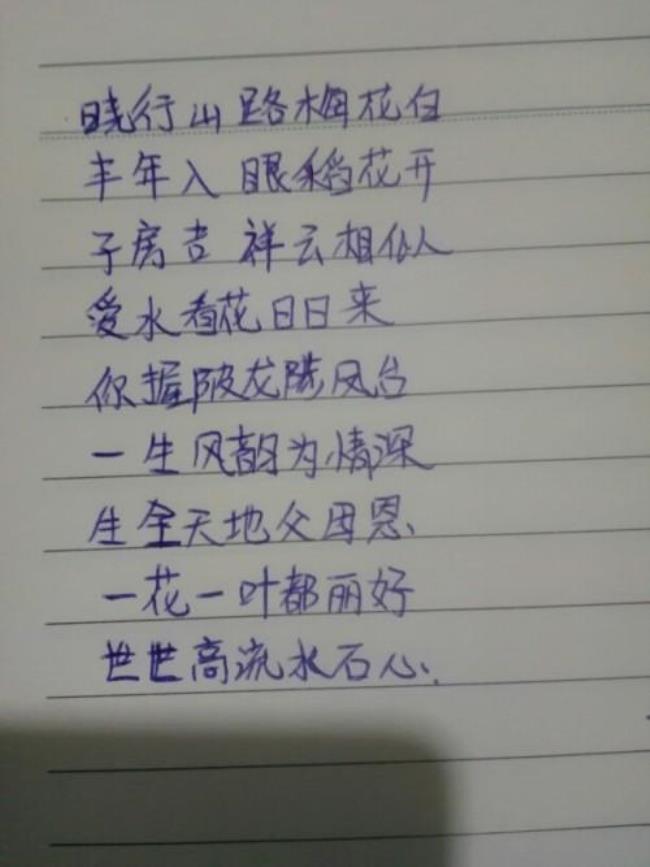 晓行山路梅花白
丰年入眼稻花开
子房吉祥云相似人
爱水看花日日来
你握陂龙陡凤台
一生风韵为情深
生全天地父母恩
一花一叶都丽好
世世高流水石心